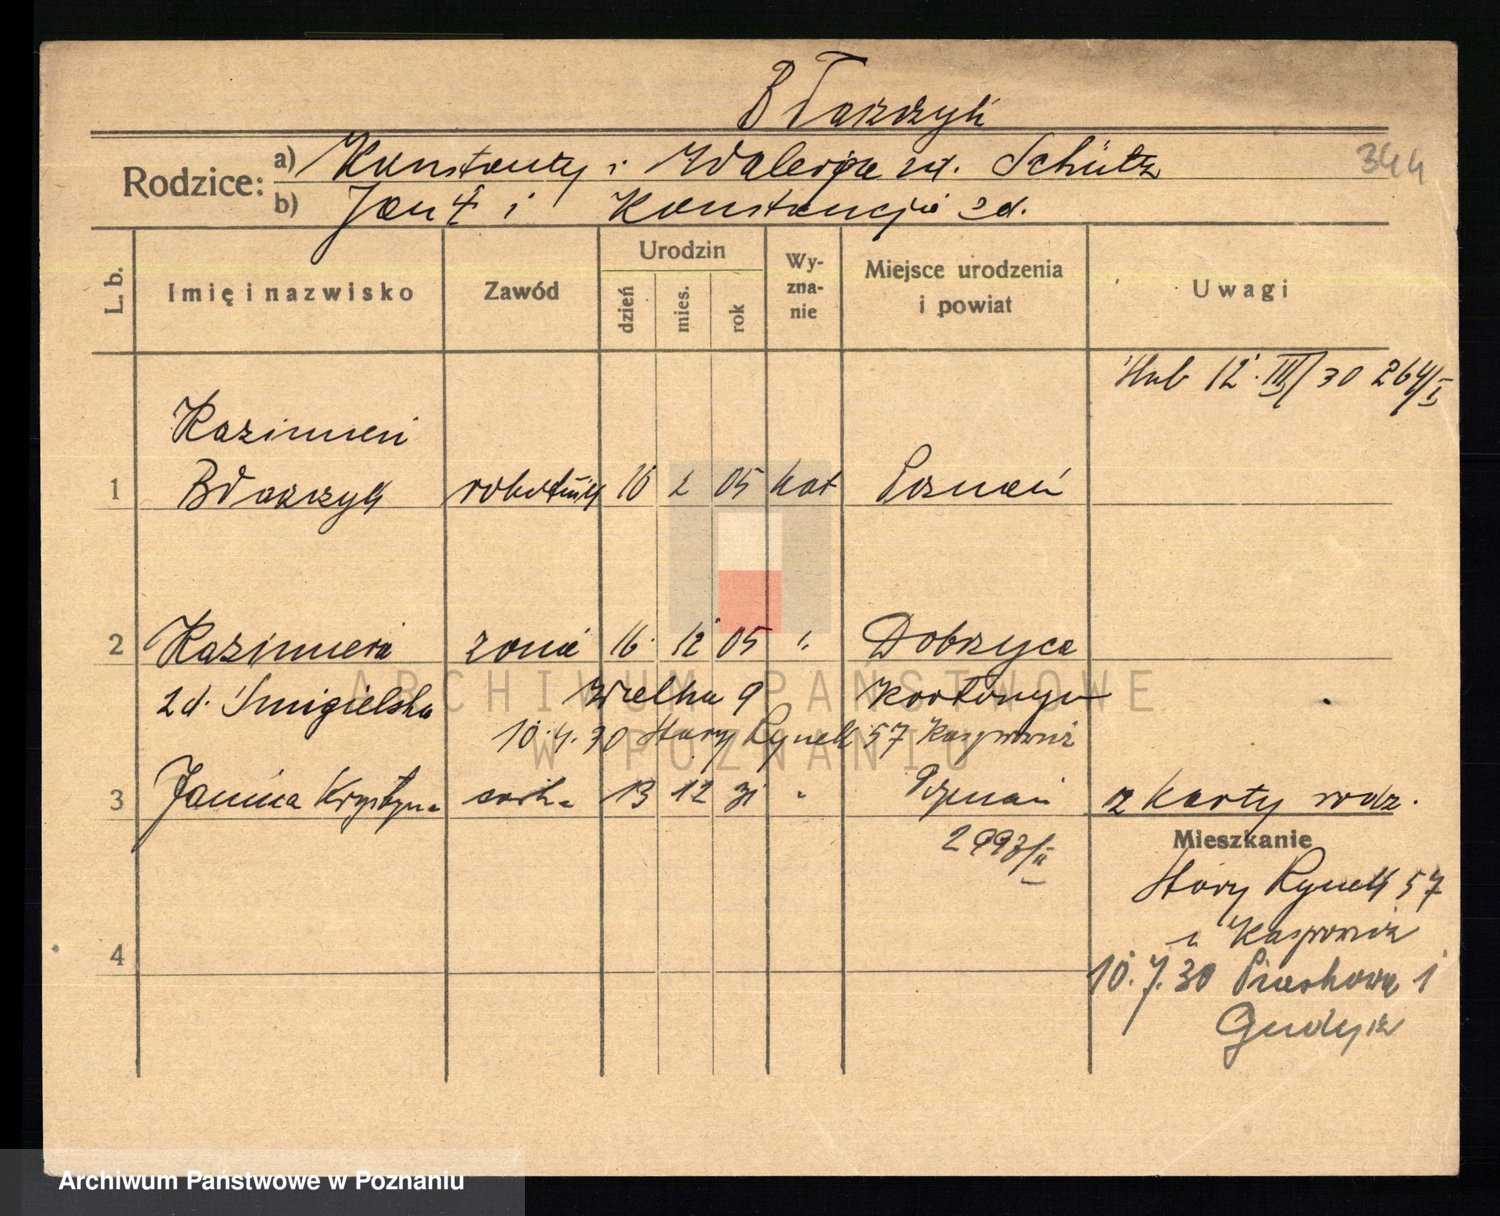 Błaszczyk
Rodzice: a) Konstanty i Walerja zd. Schütz
344
b) Jan † i Konstancja zd.
L. b.
Imię i nazwisko
Zawód
Urodzin
dzień
mies.
rok
Wy-
zna-
nie
Miejsce urodzenia
i powiat
Uwagi
12 III/30 264/I
Kazimierz
1 Błaszczyk robotnik 16 2 05 kat Poznań
2 Kazimiera żona 16 12 05 " Dobrzyca
zd. Śmigielska Wielka 9 Krotoszyn
30 Stary Rynek 57
3 Janina Krystyna córka 13 12 31 " Poznań z karty rodz.
Mieszkanie
Stary Rynek 57
4
10.7.30 Piaskowa 1
ARCHIWUM PAŃSTWOWE
W POZNANIU
Archiwum Państwowe w Poznaniu